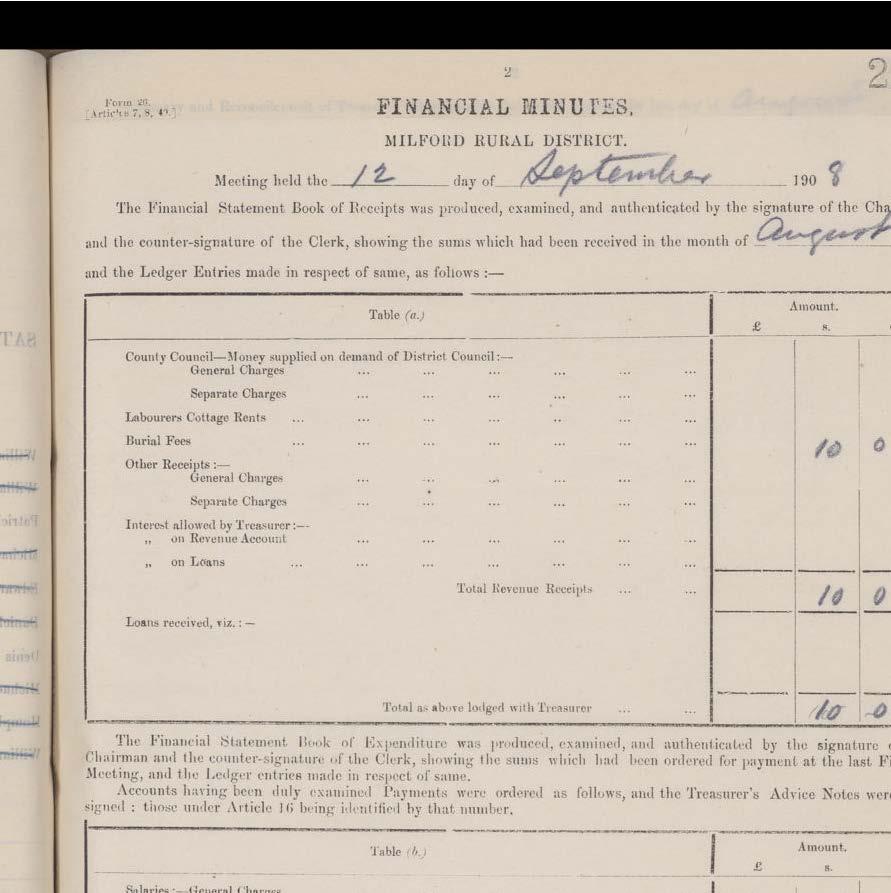 2
2
Form 26.
[Articles 7, 8, 49.]
FINANCIAL MINUTES,
MILFORD RURAL DISTRICT.
Meeting held the 12 day of September 1908
The Financial Statement Book of Receipts was produced, examined, and authenticated by the signature of the Cha
and the counter-signature of the Clerk, showing the sums which had been received in the month of August
and the Ledger Entries made in respect of same, as follows :—
Table (a.) Amount.
£ s.
County Council—Money supplied on demand of District Council:—
General Charges ... ... ... ... ... ...
Separate Charges ... ... ... ... ... ...
Labourers Cottage Rents ... ... ... ... ... ... ...
Burial Fees ... ... ... ... ... ... ... 10 0
Other Receipts :—
General Charges ... ... ... ... ... ...
Separate Charges ... ... ... ... ... ...
Interest allowed by Treasurer :—
„ on Revenue Account ... ... ... ... ... ...
„ on Loans ... ... ... ... ... ... ...
Total Revenue Receipts ... ... 10 0
Loans received, viz. : —
Total as above lodged with Treasurer ... ... 10 0
The Financial Statement Book of Expenditure was produced, examined, and authenticated by the signature
Chairman and the counter-signature of the Clerk, showing the sums which had been ordered for payment at the last Fi
Meeting, and the Ledger entries made in respect of same.
Accounts having been duly examined Payments were ordered as follows, and the Treasurer's Advice Notes were
signed : those under Article 16 being identified by that number.
Table (b.) Amount.
£ s.
Salaries :—General Charges